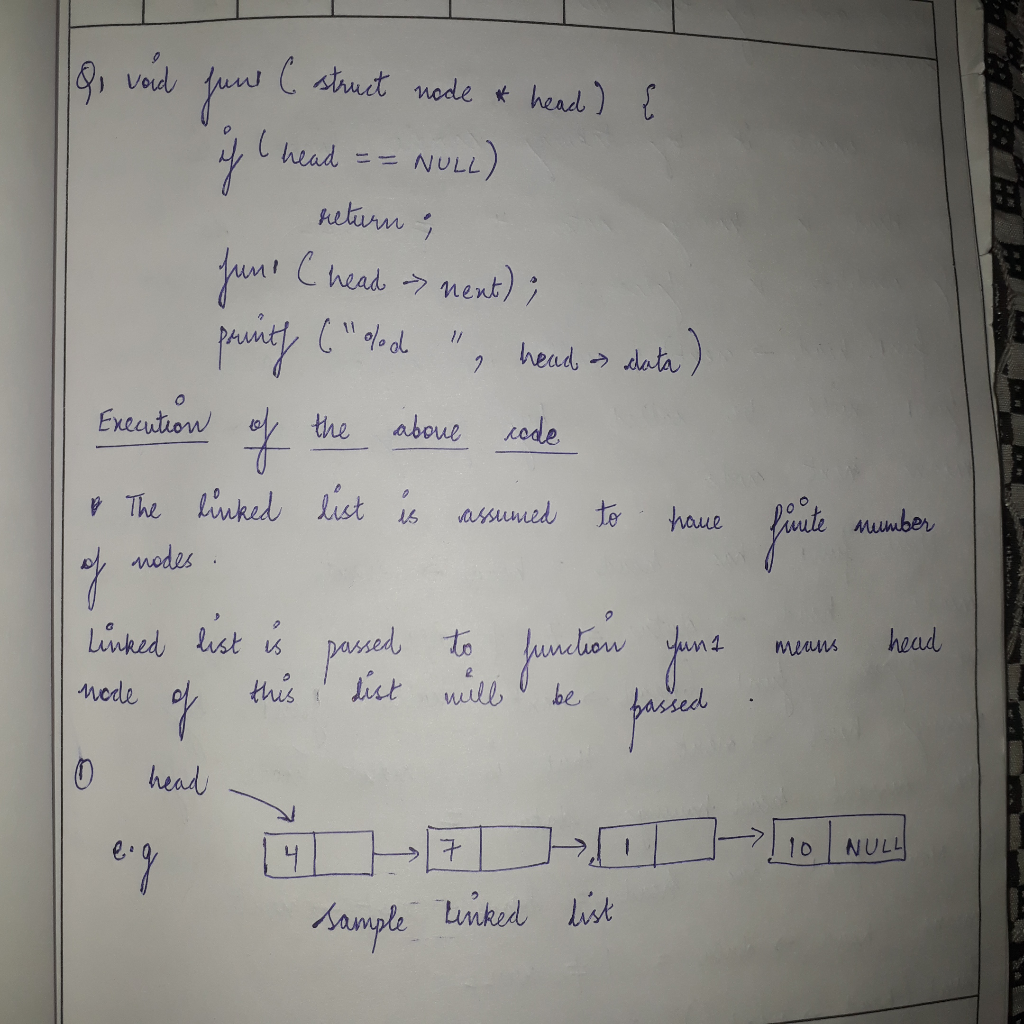 Q1 void fun1 ( struct node * head) {
if ( head == NULL)
return ;
fun1 ( head → next) ;
printf ( "%d ", head → data )
Execution of the above code
The linked list is assumed to have finite number
of nodes .
Linked list is passed to function fun1 means head
node of this list will be passed .
① head
e.g 4 7 1 10 NULL
Sample linked list